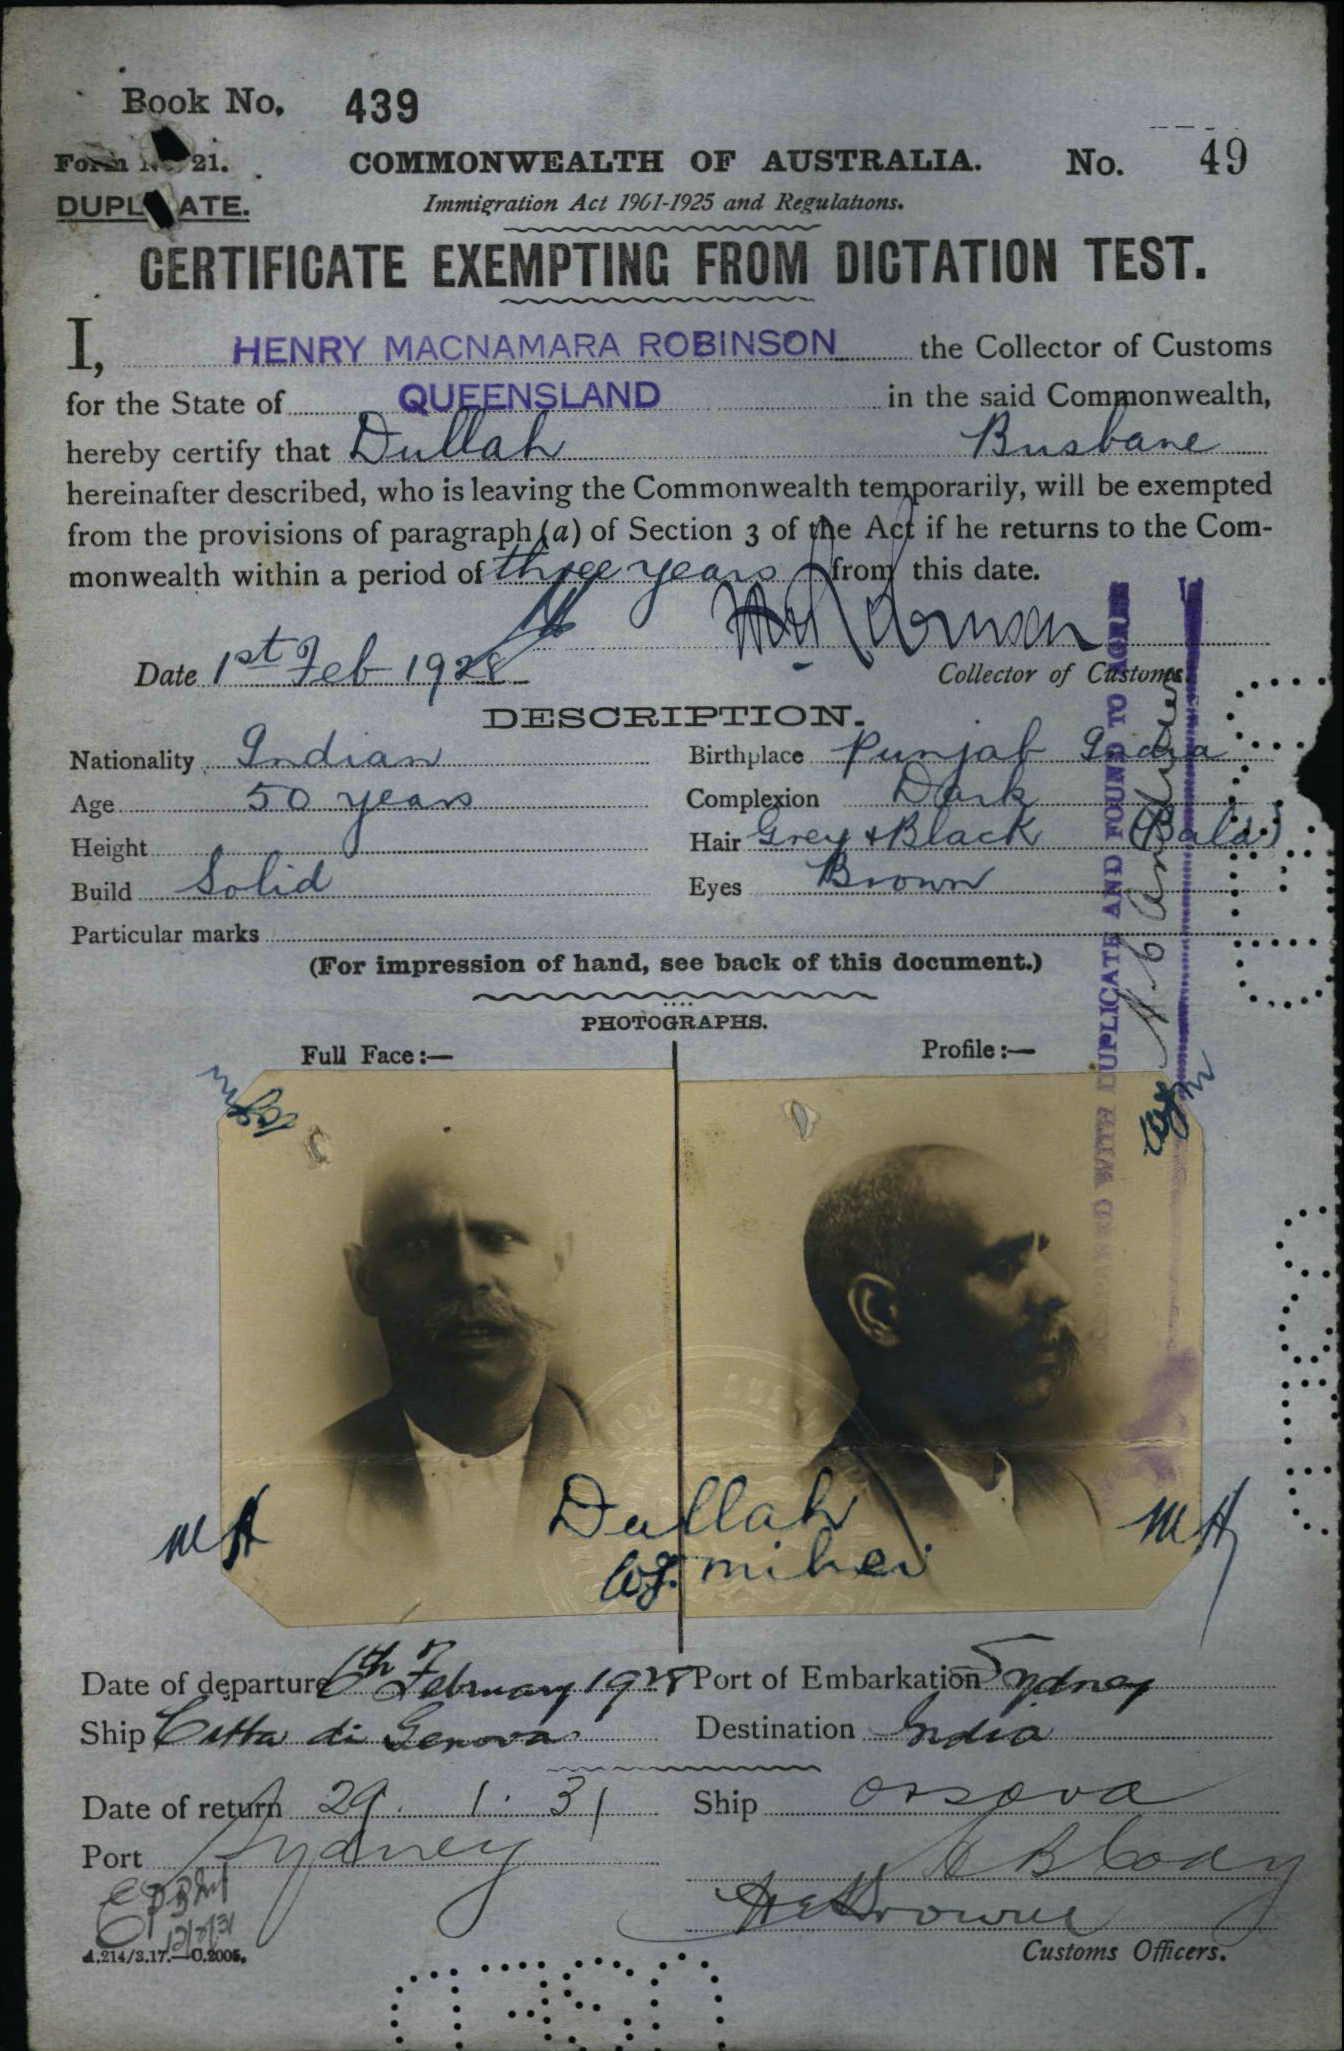 Book No. 439
Form No. 21.
COMMONWEALTH OF AUSTRALIA. No. 49
DUPLICATE.
Immigration Act 1901-1925 and Regulations.
CERTIFICATE EXEMPTING FROM DICTATION TEST.
I, HENRY MACNAMARA ROBINSON the Collector of Customs
for the State of QUEENSLAND in the said Commonwealth,
hereby certify that Dullah Brisbane
hereinafter described, who is leaving the Commonwealth temporarily, will be exempted
from the provisions of paragraph (a) of Section 3 of the Act if he returns to the Com-
monwealth within a period of three years from this date.
Date 1st Feb 1928
Collector of Customs.
DESCRIPTION.
Nationality Indian Birthplace Punjab India
Age 50 years Complexion Dark
Height Hair Grey & Black (Bald)
Build Solid Eyes Brown
Particular marks
(For impression of hand, see back of this document.)
PHOTOGRAPHS.
Full Face:— Profile:—
DUPLICATE AND FOUND TO AGREE
MH MH
Dullah
Date of departure 6th February 1928 Port of Embarkation Sydney
Ship Citta di Genova Destination India
Date of return 29. 1. 31 Ship Orsova
Port Sydney
Customs Officers.